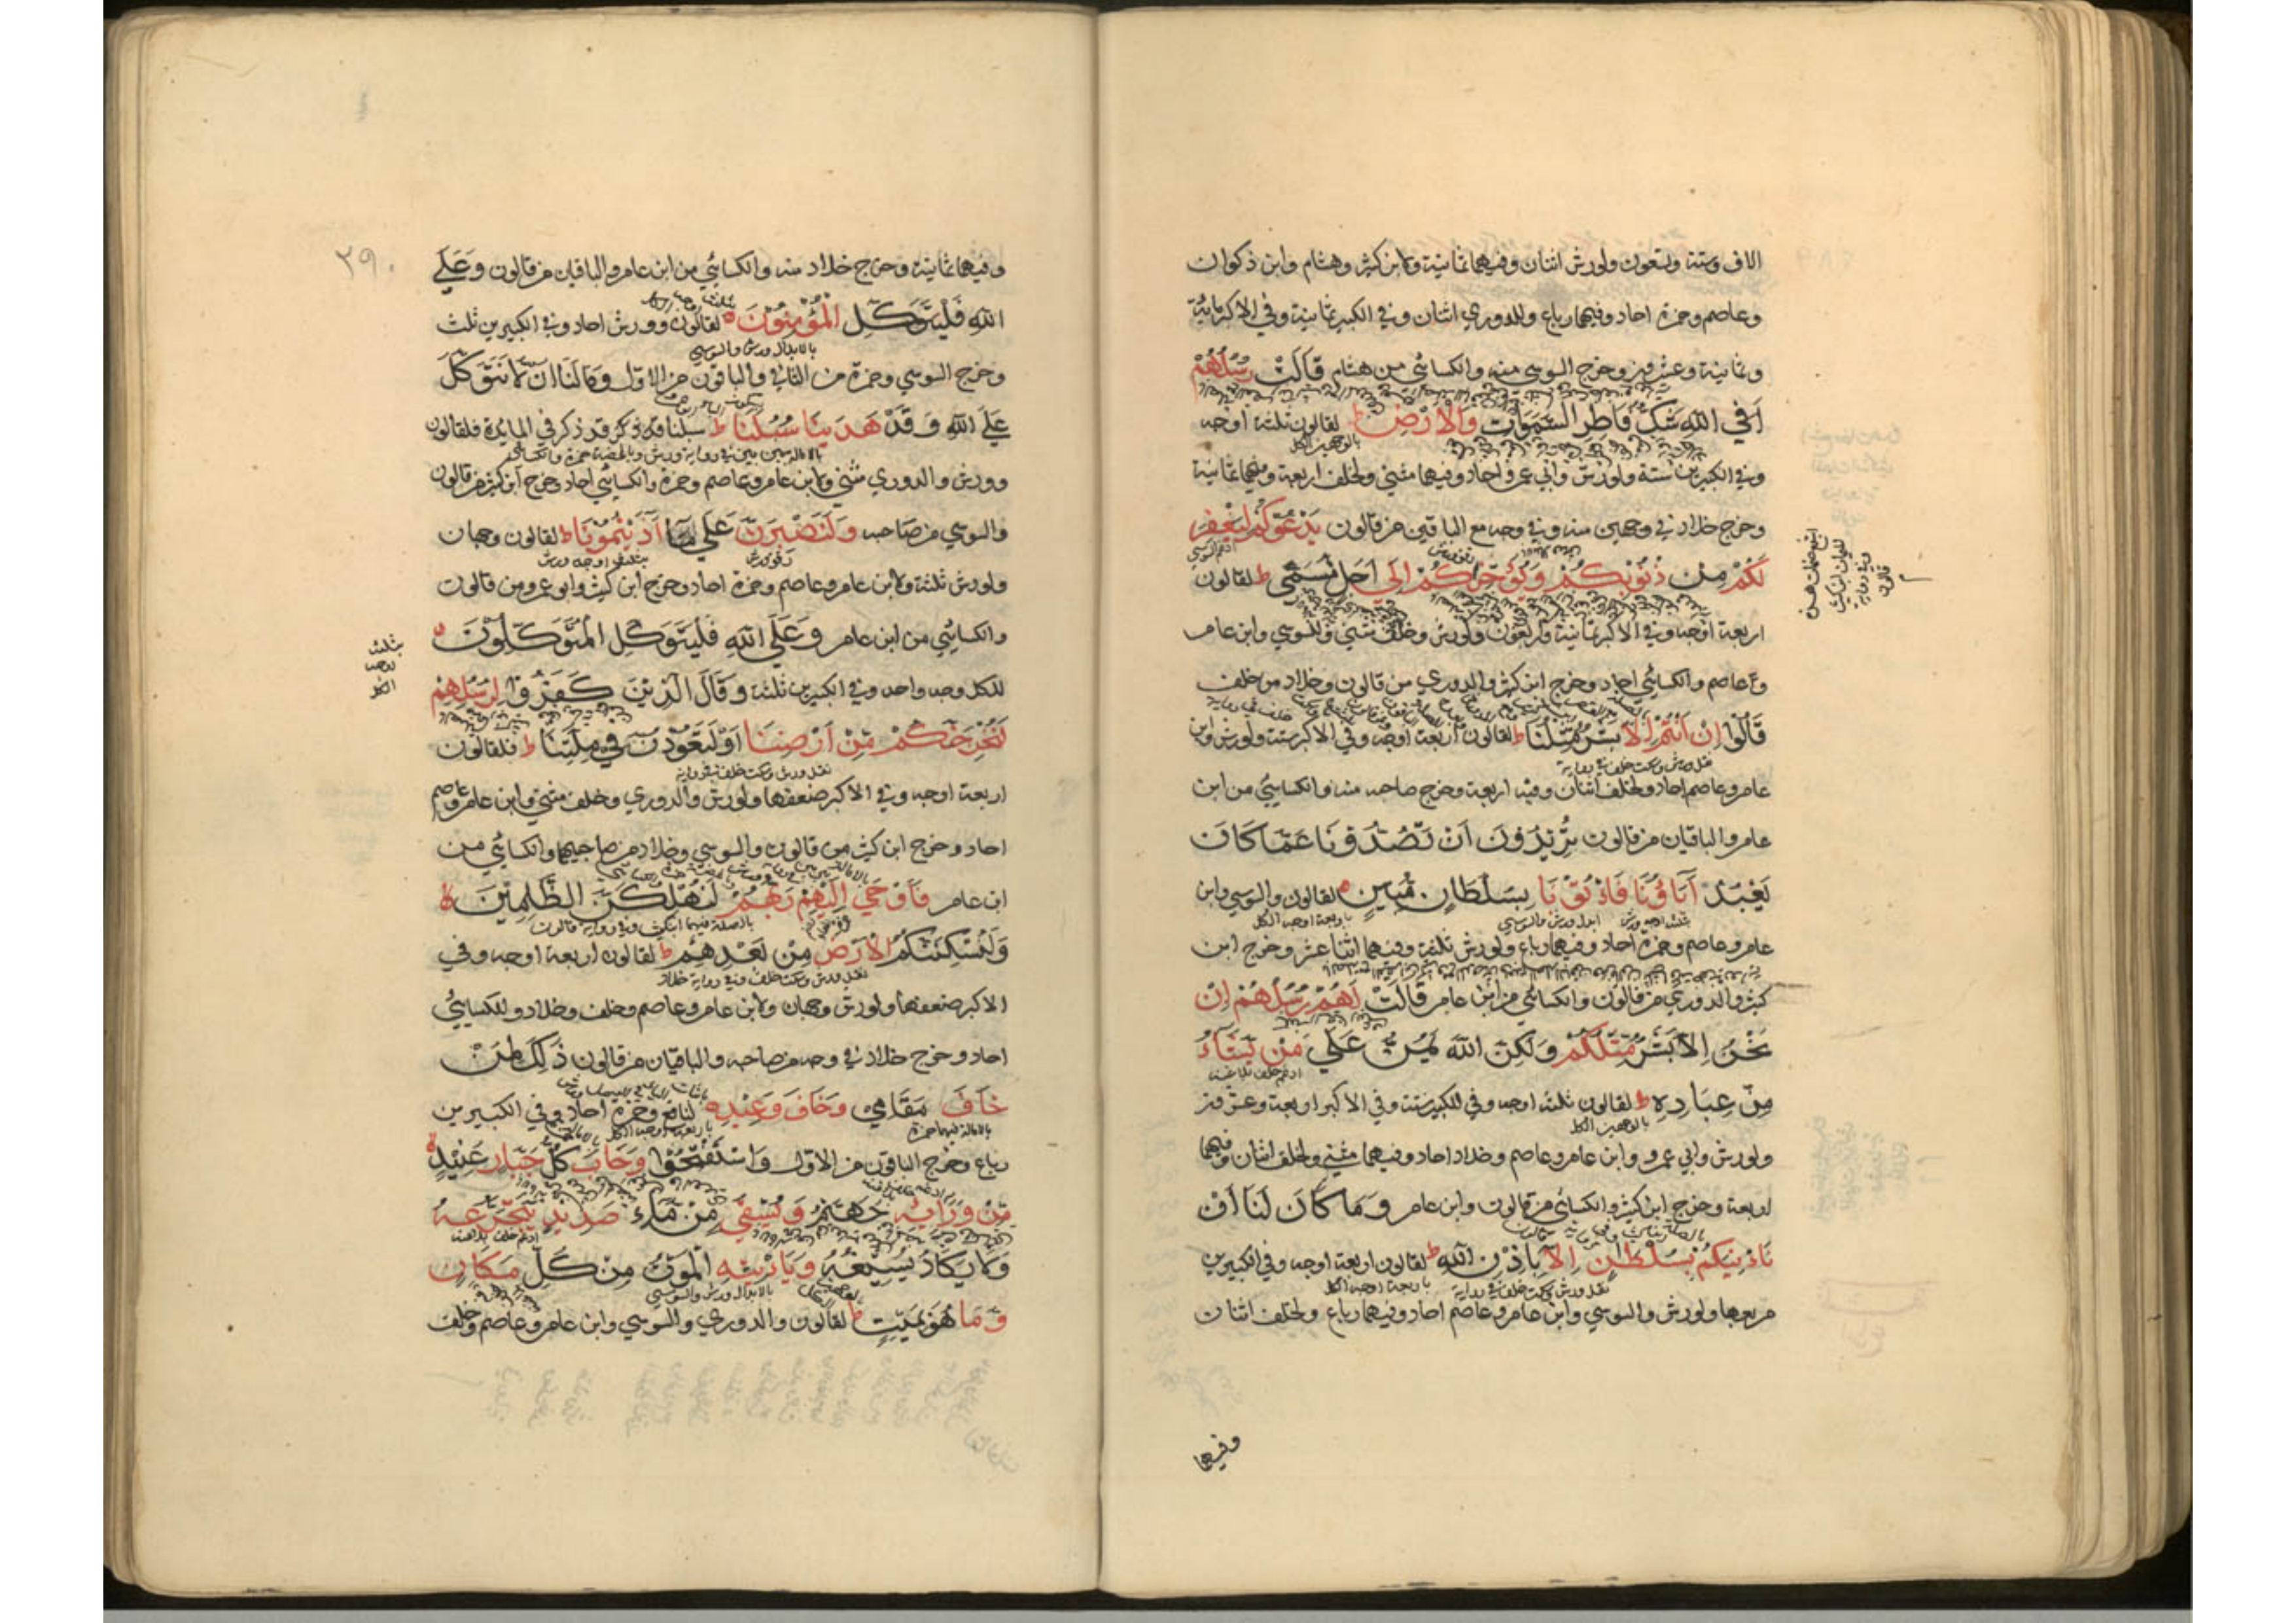 الاف وستة وتسعون ولورش اثنان وفيهما ثمانية ولابن كثير وهشام وابن ذكوان
وعاصم وحمزة احاد وفيهما رباع وللدوري اثنان وفي الكبير ثمانية وفي الاكبر مائة
وثمانية وعشرين وخرج السوسي منه والكسائي من هشام قَالَتْ رُسُلُهُمْ
اَفِي اللّٰهِ شَكٌّ فَاطِرِ السَّمٰوَاتِ وَالْاَرْضِ ط لقالون ثلثة اوجه
بالوجهين الكل
وفي الكبيرين ستة ولورش وابي عمرو احاد وفيهما مثنى ولخلف اربعة وفيهما ثمانية
وخرج خلاد في وجهين منه وفي وجه مع الباقين من قالون يَدْعُوكُمْ لِيَغْفِرَ
لَكُمْ مِنْ ذُنُوبِكُمْ وَيُؤَخِّرَكُمْ اِلٰى اَجَلٍ مُسَمًّى ط لقالون
اربعة اوجه وفي الاكبر ثمانية واربعون ولورش وخلف مثنى وللسوسي وابن عامر
وعاصم والكسائي احاد وخرج ابن كثير والدوري من قالون وخلاد من خلف
قَالُوا اِنْ اَنْتُمْ اِلَّا بَشَرٌ مِثْلُنَا ط لقالون اربعة اوجه وفي الاكبر ستة ولورش وابن
نقل ورش وسكت خلف في رواية
عامر وعاصم احاد ولخلف اثنان وفيه اربعة وخرج صاحبه منه والكسائي من ابن
عامر والباقيان من قالون تُرِيدُونَ اَنْ تَصُدُّونَا عَمَّا كَانَ
يَعْبُدُ اٰبَاؤُنَا فَاْتُونَا بِسُلْطَانٍ مُبِينٍ ه لقالون والسوسي وابن
ثلث اوجه ورش ابدل ورش والسوسي باربعة اوجه الكل
عامر وعاصم وحمزة احاد وفيهما رباع ولورش ثلثة وفيهما اثنا عشر وخرج ابن
كثير والدوري من قالون والكسائي من ابن عامر قَالَتْ لَهُمْ رُسُلُهُمْ اِنْ
نَحْنُ اِلَّا بَشَرٌ مِثْلُكُمْ وَلٰكِنَّ اللّٰهَ يَمُنُّ عَلٰى مَنْ يَشَاءُ
ادغم خلف بلا غنة
مِنْ عِبَادِهِ ط لقالون ثلثة اوجه وفي الكبير ستة وفي الاكبر اربعة وعشرين
بالوجهين الكل
ولورش وابي عمرو وابن عامر وعاصم وخلاد احاد وفيهما مثنى ولخلف اثنان وفيهما
اربعة وخرج ابن كثير والكسائي من قالون وابن عامر وَمَا كَانَ لَنَا اَنْ
نَاْتِيَكُمْ بِسُلْطَانٍ اِلَّا بِاِذْنِ اللّٰهِ ط لقالون اربعة اوجه وفي الكبيرين
نقل ورش وسكت خلف في رواية باربعة اوجه الكل
مربعها ولورش والسوسي وابن عامر وعاصم احاد وفيهما رباع ولخلف اثنان
وفيهما
٢٩٠
وفيهما ثمانية وخرج خلاد منه والكسائي من ابن عامر والباقيان من قالون وَعَلَى
اللّٰهِ فَلْيَتَوَكَّلِ الْمُؤْمِنُونَ ه لقالون وورش احاد وفي الكبيرين ثلث
بالابدال ورش والسوسي
وخرج السوسي وحمزة من الثاني والباقون من الاول وَمَا لَنَا اَنْ لَا نَتَوَكَّلَ
عَلَى اللّٰهِ وَقَدْ هَدٰينَا سُبُلَنَا ط سبلنا قد ذكر في المايدة فلقالون
بالامالة بين بين في رواية ورش وبالمحضة حمزة والكسائي
وورش والدوري مثنى ولابن عامر وعاصم وحمزة والكسائي احاد وخرج ابن كثير من قالون
والسوسي من صاحبه وَلَنَصْبِرَنَّ عَلٰى مَا اٰذَيْتُمُونَا ط لقالون وجهان
رقق ورش بثلثة اوجه ورش
ولورش ثلثة ولابن عامر وعاصم وحمزة احاد وخرج ابن كثير وابو عمرو من قالون
والكسائي من ابن عامر وَعَلَى اللّٰهِ فَلْيَتَوَكَّلِ الْمُتَوَكِّلُونَ ه
بثلثة
اوجه
الكل
للكل وجه واحد وفي الكبيرين ثلثة وَقَالَ الَّذِينَ كَفَرُوا لِرُسُلِهِمْ
لَنُخْرِجَنَّكُمْ مِنْ اَرْضِنَا اَوْ لَتَعُودُنَّ فِي مِلَّتِنَا ط فلقالون
نقل ورش وسكت خلف في رواية
اربعة اوجه وفي الاكبر ضعفها ولورش والدوري وخلف مثنى وابن عامر وعاصم
احاد وخرج ابن كثير من قالون والسوسي وخلاد من صاحبيهما والكسائي من
ابن عامر فَاَوْحٰى اِلَيْهِمْ رَبُّهُمْ لَنُهْلِكَنَّ الظّٰلِمِينَ لا
بالصلة فيهما ابن كثير وفي رواية قالون
وَلَنُسْكِنَنَّكُمُ الْاَرْضَ مِنْ بَعْدِهِمْ ط لقالون اربعة اوجه وفي
نقل ورش وسكت خلف وفي رواية خلاد
الاكبر ضعفها ولورش وجهان ولابن عامر وعاصم وخلف وخلاد وللكسائي
احاد وخرج خلاد في وجه من صاحبه والباقيان من قالون ذٰلِكَ لِمَنْ
خَافَ مَقَامِي وَخَافَ وَعِيدِ ه لنافع وحمزة احاد وفي الكبيرين
بالامالة فيهما حمزة باربعة اوجه الكل
رباع وخرج الباقون من الاول وَاسْتَفْتَحُوا وَخَابَ كُلُّ جَبَّارٍ عَنِيدٍ ه
مِنْ وَرَائِهِ جَهَنَّمُ وَيُسْقٰى مِنْ مَاءٍ صَدِيدٍ يَتَجَرَّعُهُ
ادغم خلف بلا غنة
وَلَا يَكَادُ يُسِيغُهُ وَيَاْتِيهِ الْمَوْتُ مِنْ كُلِّ مَكَانٍ
بالابدال ورش والسوسي
وَمَا هُوَ بِمَيِّتٍ ط لقالون والدوري والسوسي وابن عامر وعاصم وخلف